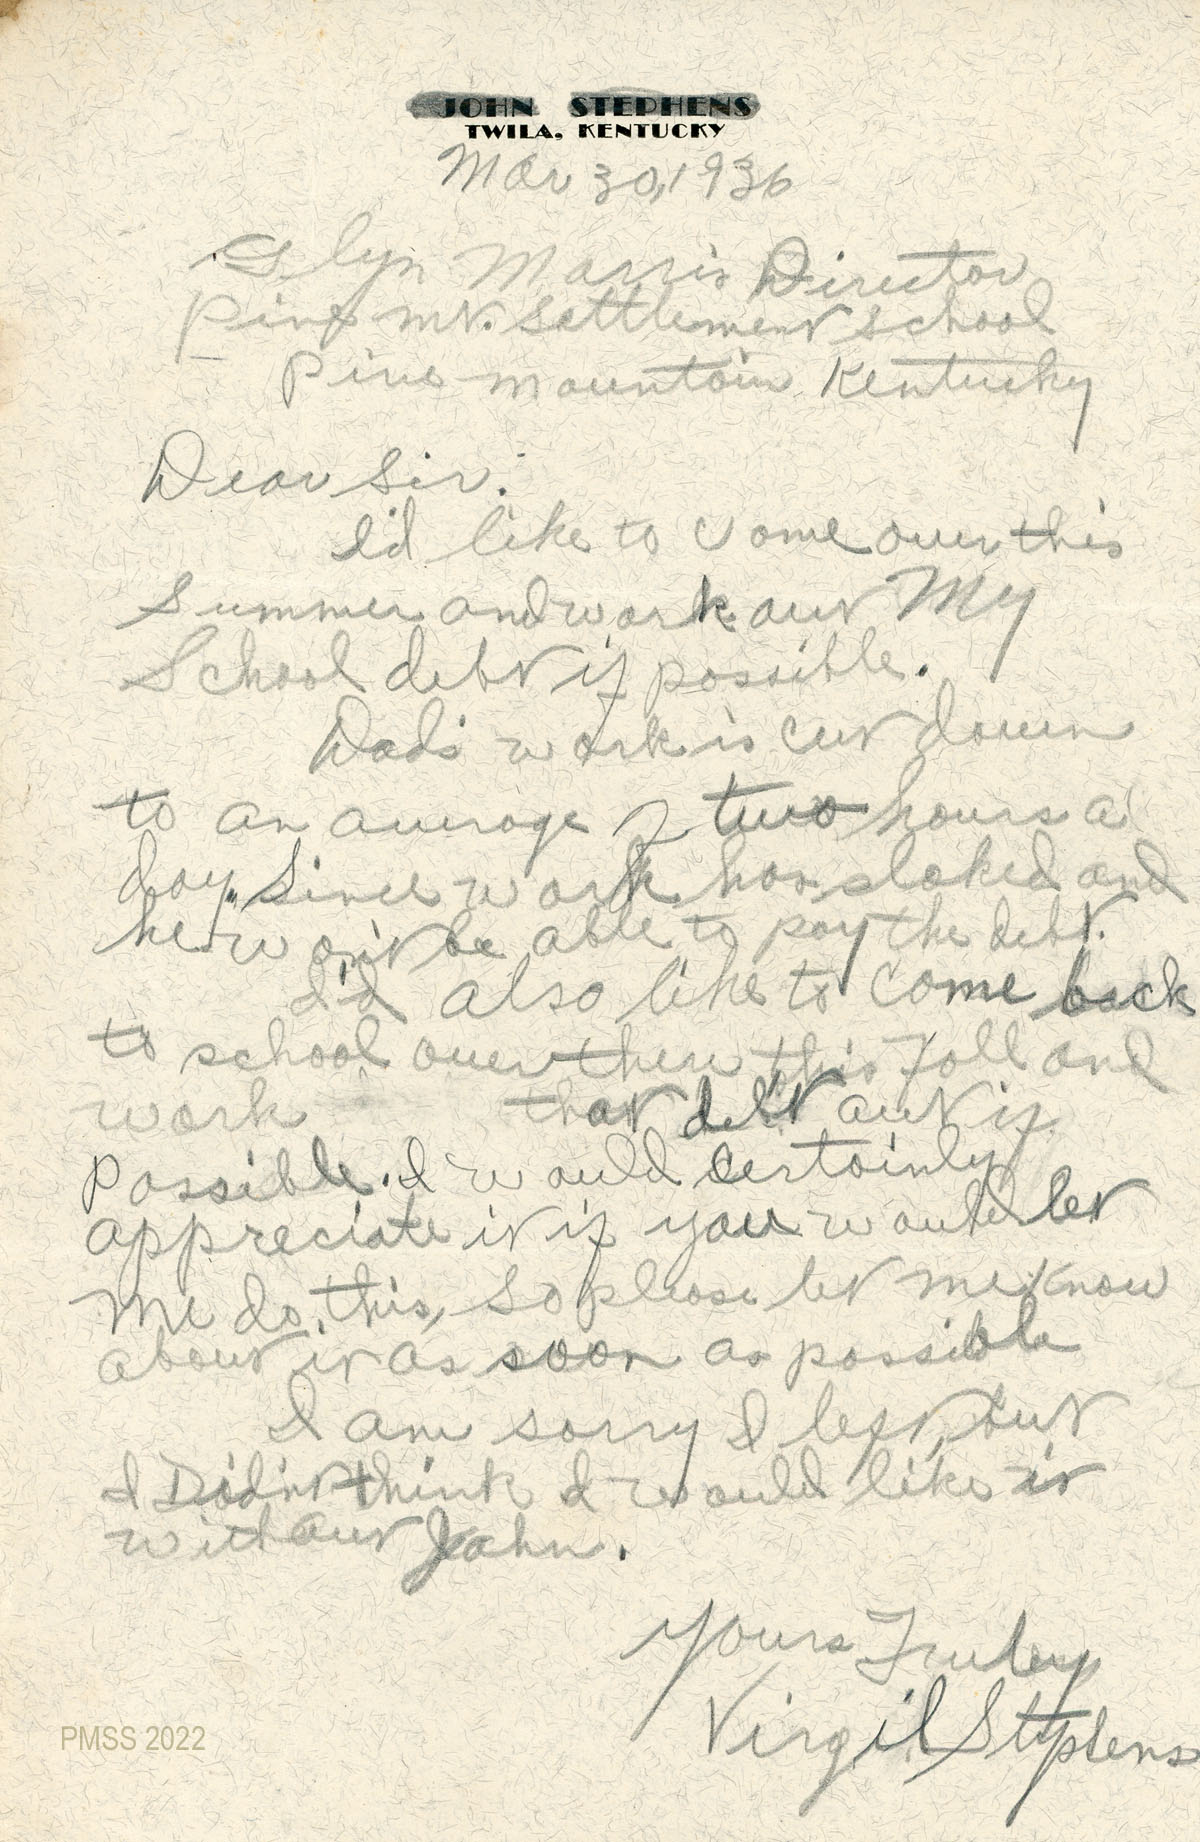 JOHN STEPHENS
TWILA, KENTUCKY
Mar 30, 1936
Glyn Morris Director
Pine mt. Settlement School
Pine mountain Kentucky
Dear Sir:
I'd like to come over this
Summer and work out My
School debt if possible.
Dad's work is cut down
to an average of two hours a
day, Since work has slaked and
he won't be able to pay the debt.
I'd also like to come back
to school over there this Fall and
work that debt out if
possible. I would certainly
appreciate it if you would let
me do this, So please let me know
about it as soon as possible
I am sorry I left, but
I Didn't think I would like it
without John.
Yours Truley
Virgil Stephens
PMSS 2022